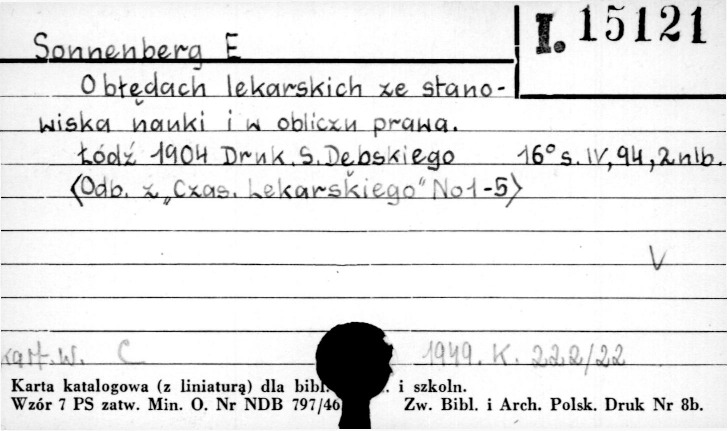 Sonnenberg E
I. 15121
O błędach lekarskich ze stano-
wiska nauki i w obliczu prawa.
Łódź 1904 Druk. S. Dębskiego 16° s. IV, 94, 2 nlb.
(Odb. z „Czas. Lekarskiego" No 1-5)
V
kart. W. C 1949. K. 222/22
Karta katalogowa (z liniaturą) dla bibl. i szkoln.
Wzór 7 PS zatw. Min. O. Nr NDB 797/46 Zw. Bibl. i Arch. Polsk. Druk Nr 8b.